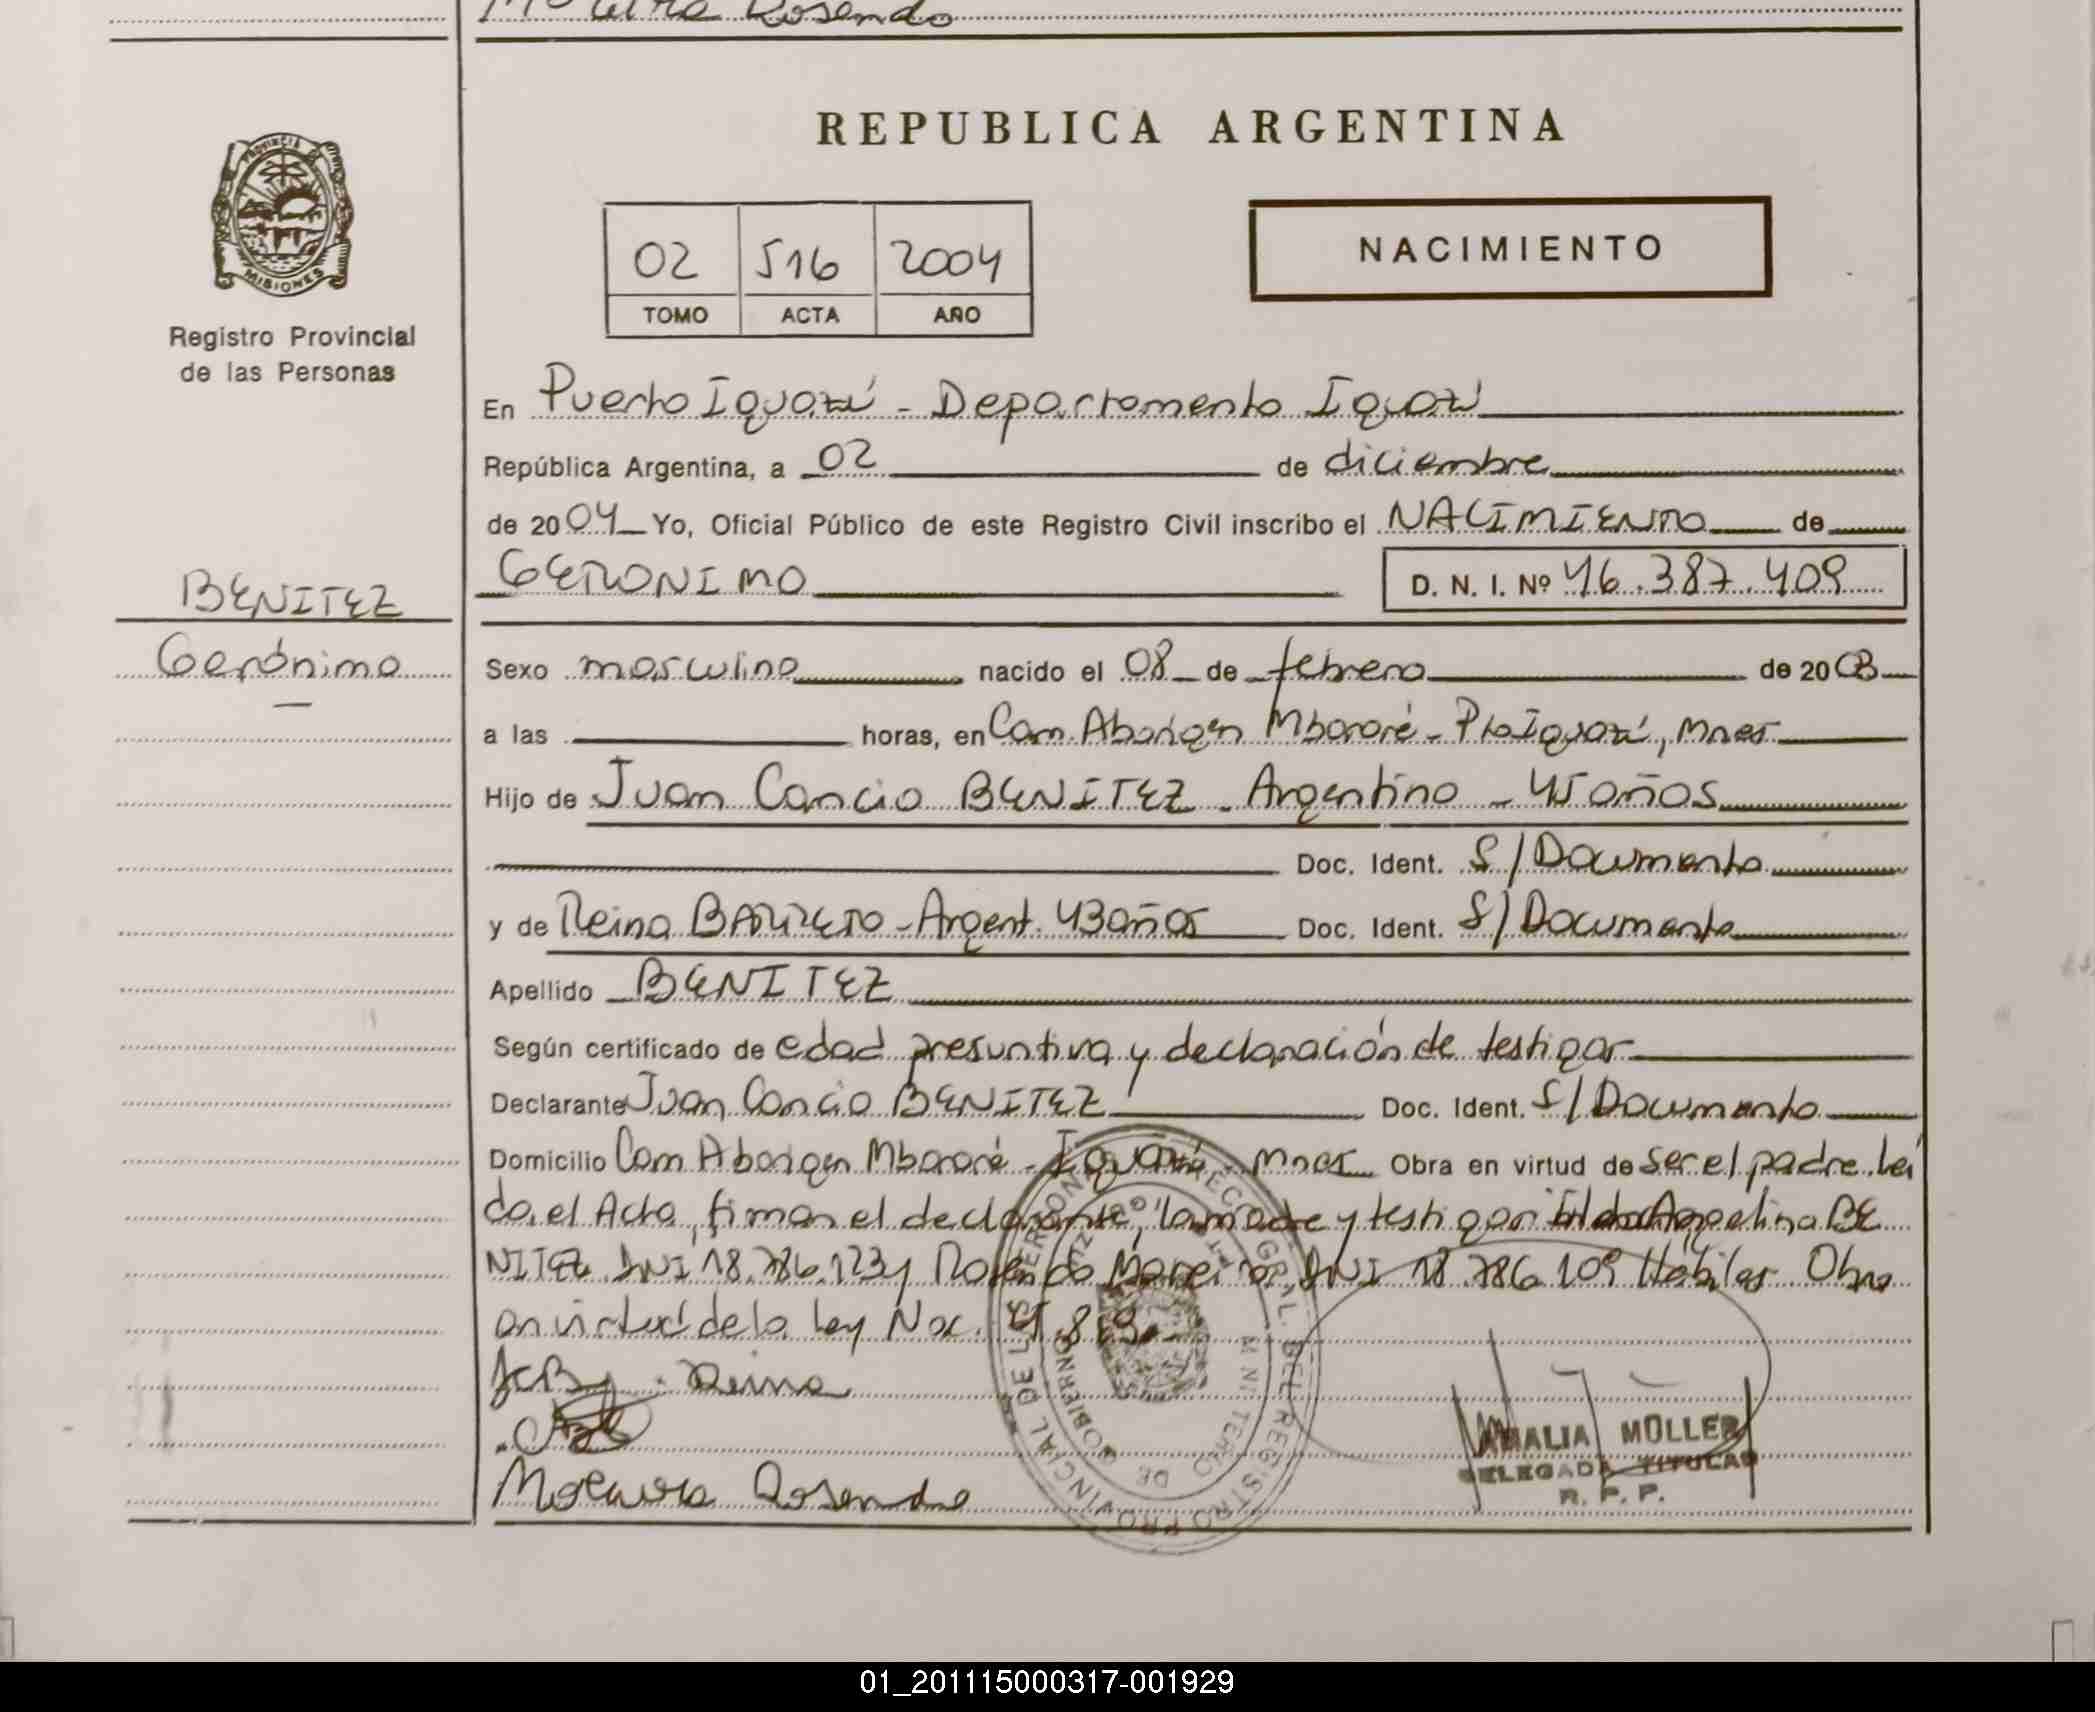 Rosendo
REPUBLICA ARGENTINA
PROVINCIA
MISIONES
Registro Provincial
de las Personas
02 516 2004
TOMO ACTA AÑO
NACIMIENTO
En Puerto Iguazú - Departamento Iguazú
República Argentina, a 02 de diciembre
de 2004 Yo, Oficial Público de este Registro Civil inscribo el NACIMIENTO de
GERONIMO D. N. I. Nº 46.387.409
BENITEZ
Gerónimo
Sexo masculino nacido el 08 de febrero de 2003
a las horas, en Com. Aborigen Mbororé - Pto Iguazú, Mnes
Hijo de Juan Cancio BENITEZ - Argentino - 45 años
Doc. Ident. S/Documento
y de Reina BARRETO - Argent. 43 años Doc. Ident. S/Documento
Apellido BENITEZ
Según certificado de edad presuntiva y declaración de testigos
Declarante Juan Cancio BENITEZ Doc. Ident. S/Documento
Domicilio Com Aborigen Mbororé - Iguazú - Mnes Obra en virtud de ser el padre. Leí
da el Acta, firman el declarante, la madre y testigos Angelina BE
NITEZ DNI 18.786.123 y Rosendo Moreira DNI 18.786.109 Hábiles. Obra
en virtud de la Ley Nac.
JCB Reina
Moreira Rosendo
REGISTRO PROVINCIAL DE LAS PERSONAS
MINISTERIO DE GOBIERNO
AMALIA MÜLLER
DELEGADA TITULAR
R. P. P.
01_201115000317-001929